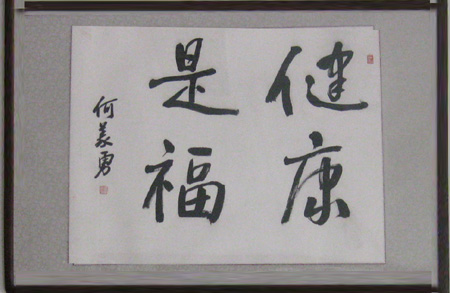 健康
是福
何美勇